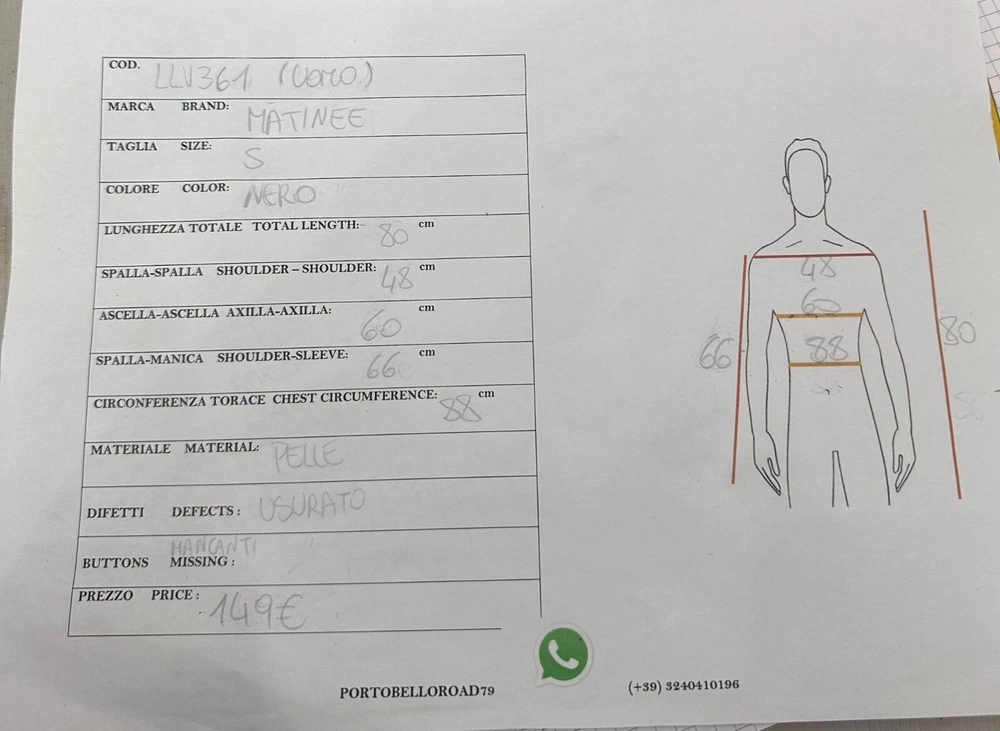 COD. LLV361 (Vero)
MARCA BRAND: MATINEE
TAGLIA SIZE: S
COLORE COLOR: NERO
LUNGHEZZA TOTALE TOTAL LENGTH: 80 cm
SPALLA-SPALLA SHOULDER – SHOULDER: 48 cm
ASCELLA-ASCELLA AXILLA-AXILLA: 60 cm
SPALLA-MANICA SHOULDER-SLEEVE: 66 cm
CIRCONFERENZA TORACE CHEST CIRCUMFERENCE: 88 cm
MATERIALE MATERIAL: PELLE
DIFETTI DEFECTS: USURATO
MANCANTI
BUTTONS MISSING:
PREZZO PRICE: 149€
48
60
66 88 80
PORTOBELLOROAD79 (+39) 3240410196